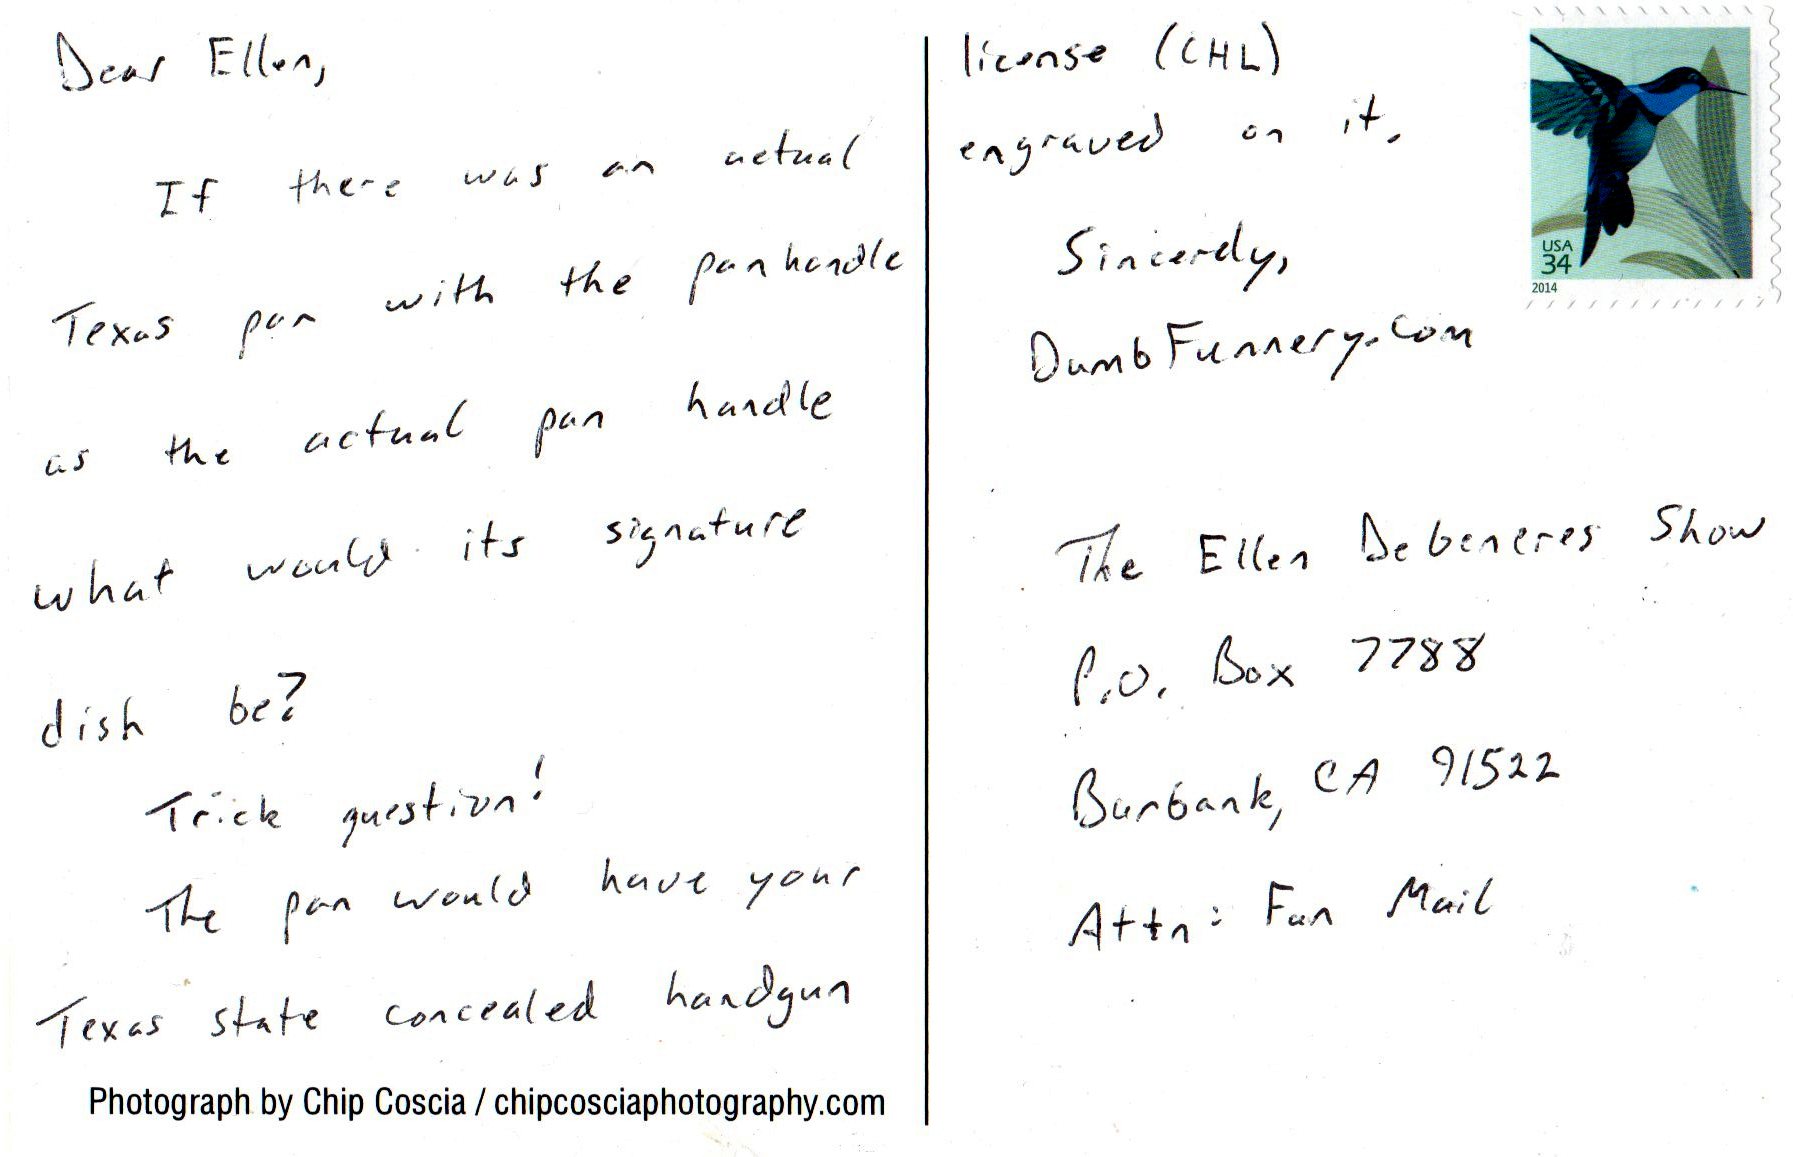 Dear Ellen,
If there was an actual
Texas pan with the panhandle
as the actual pan handle
what would its signature
dish be?
Trick question!
The pan would have your
Texas state concealed handgun
Photograph by Chip Coscia / chipcosciaphotography.com
license (CHL)
engraved on it.
Sincerely,
DumbFunnery.com
USA
34
2014
The Ellen Debeneres Show
P.O. Box 7788
Burbank, CA 91522
Attn: Fan Mail